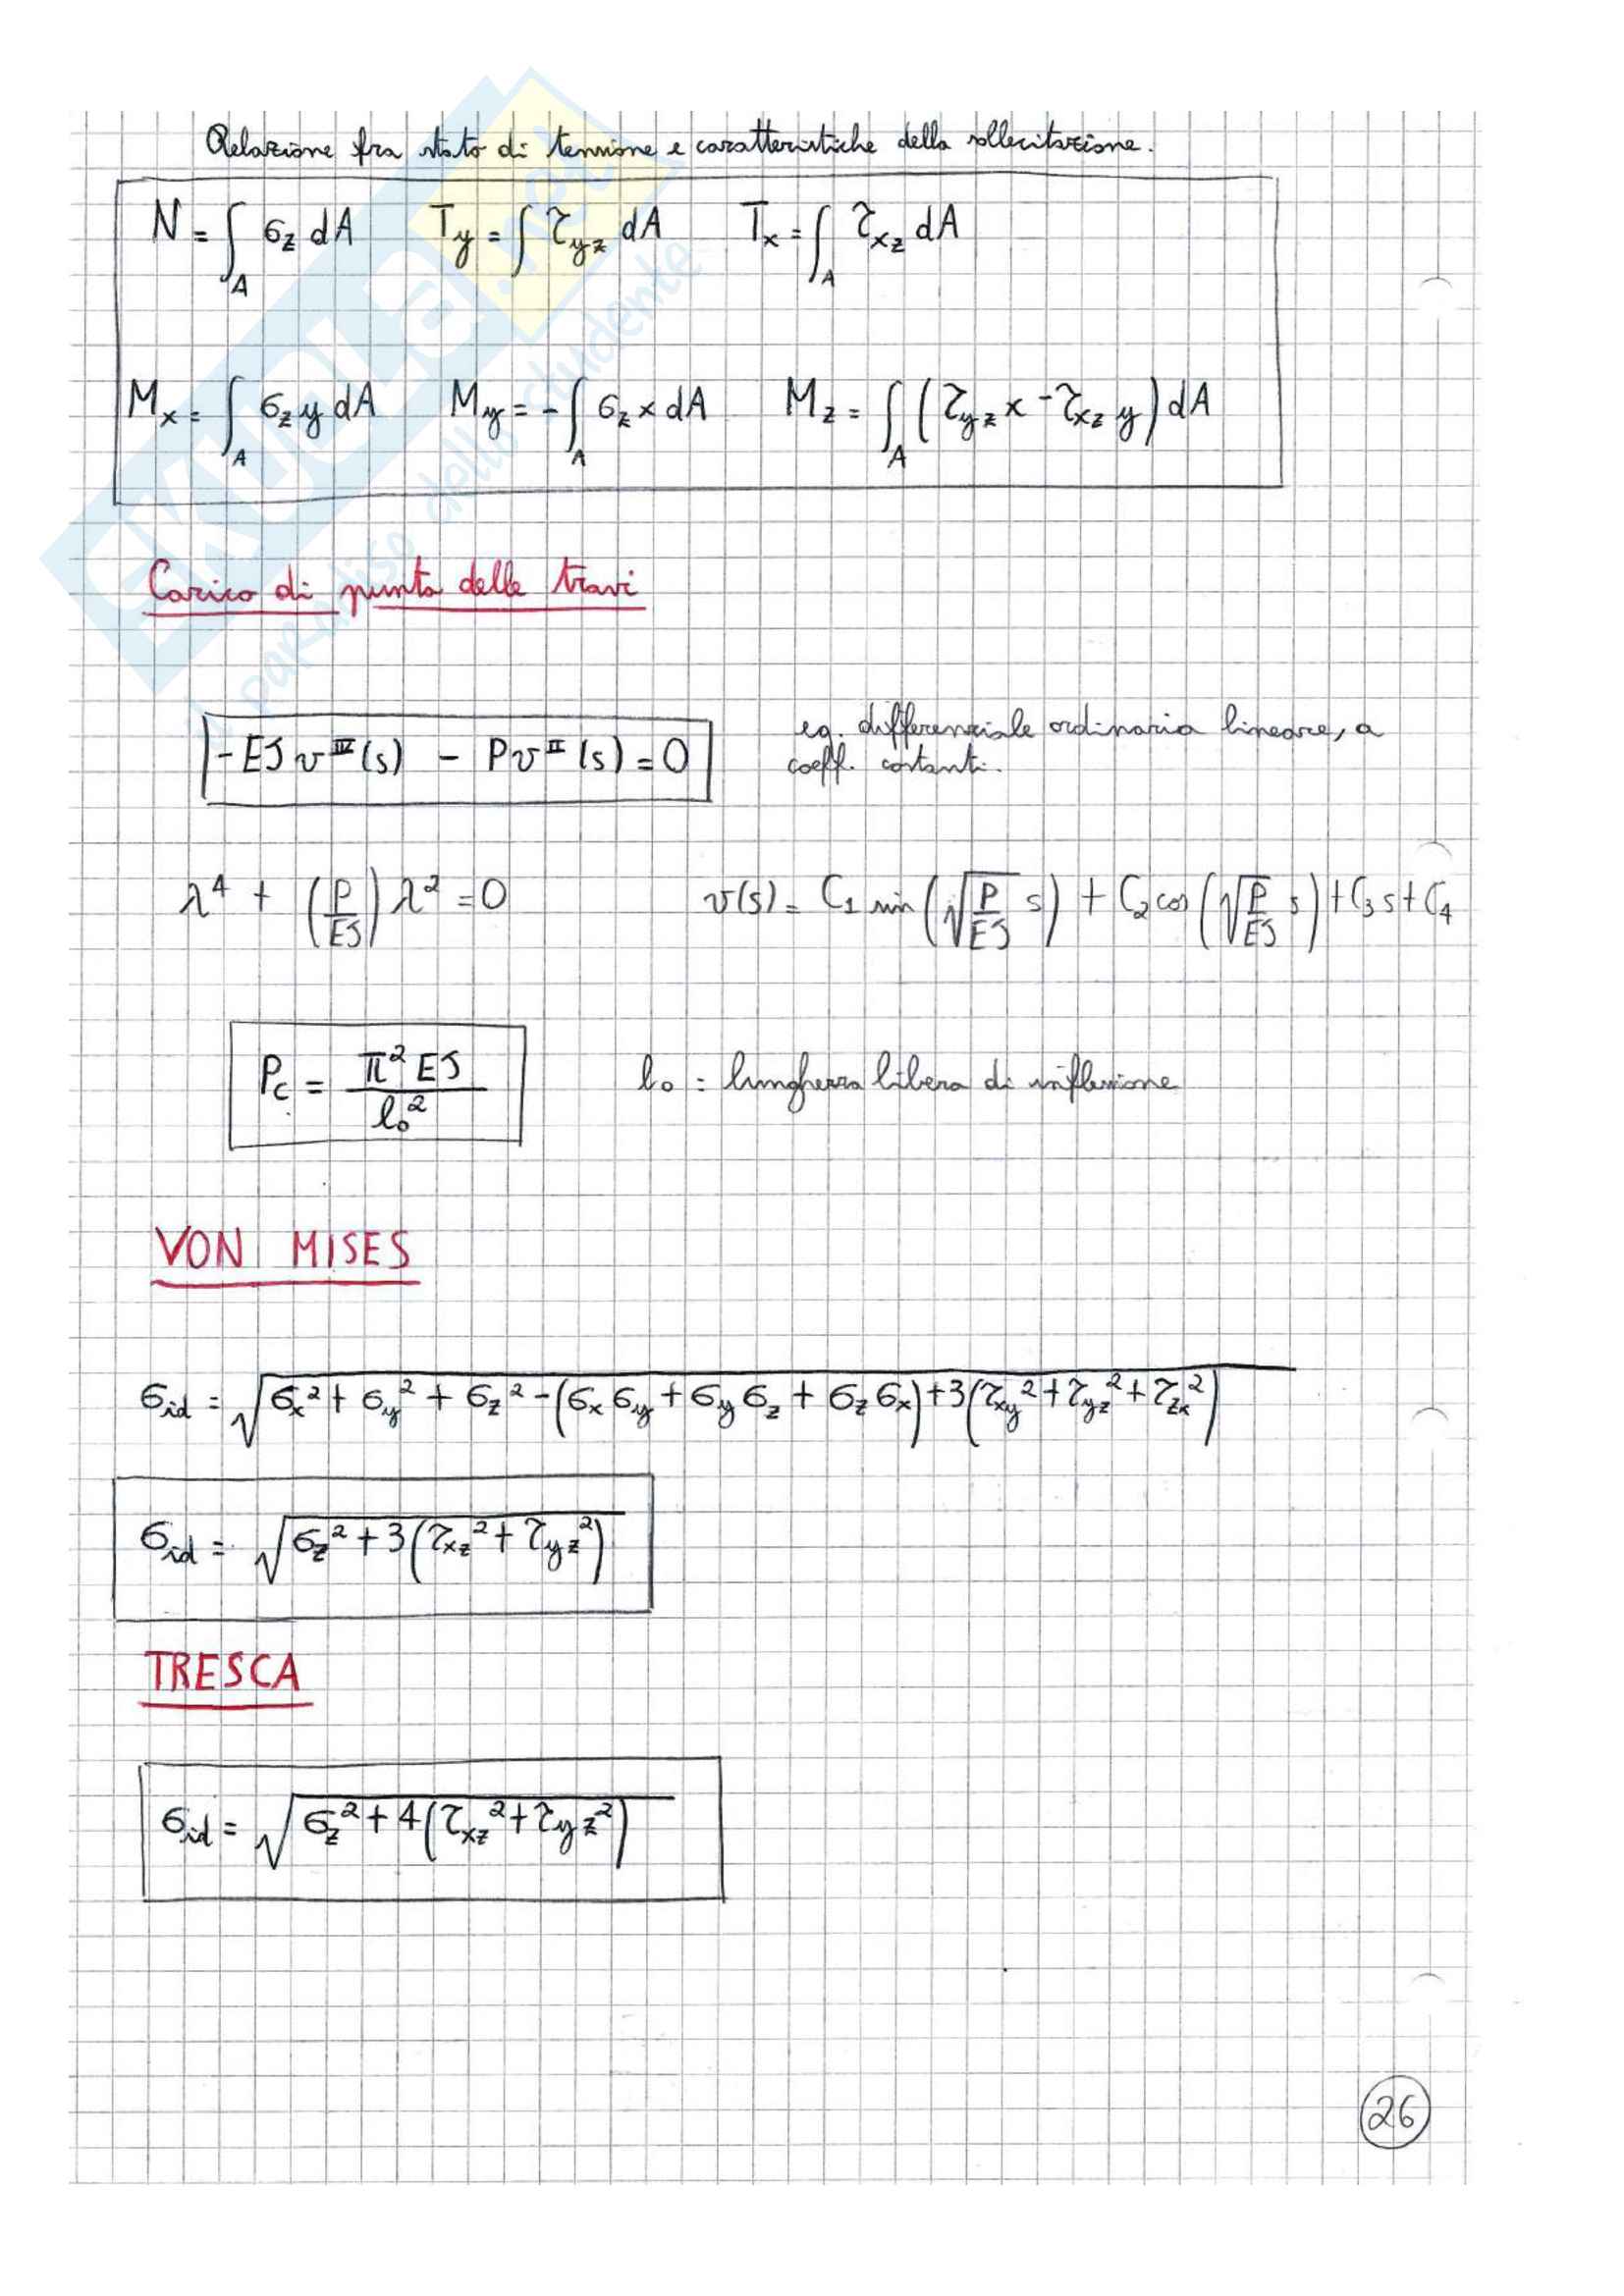 Relazione fra stato di tensione e caratteristiche della sollecitazione.
N = ∫_A σ_z dA   T_y = ∫ τ_yz dA   T_x = ∫_A τ_xz dA
M_x = ∫_A σ_z y dA   M_y = -∫_A σ_z x dA   M_z = ∫_A (τ_yz x - τ_xz y) dA
Carico di punta delle travi
-EJ v^IV (s) - P v^II (s) = 0
eq. differenziale ordinaria lineare, a
coeff. costanti.
λ⁴ + (P/EJ) λ² = 0   v(s) = C₁ sin(√(P/EJ) s) + C₂ cos(√(P/EJ) s) + C₃ s + C₄
P_c = π² EJ / l₀²   l₀ = lunghezza libera di inflessione
VON MISES
σ_id = √(σ_x² + σ_y² + σ_z² - (σ_x σ_y + σ_y σ_z + σ_z σ_x) + 3(τ_xy² + τ_yz² + τ_zx²))
σ_id = √(σ_z² + 3(τ_xz² + τ_yz²))
TRESCA
σ_id = √(σ_z² + 4(τ_xz² + τ_yz²))
26
SKUOLA.net
il paradiso dello studente